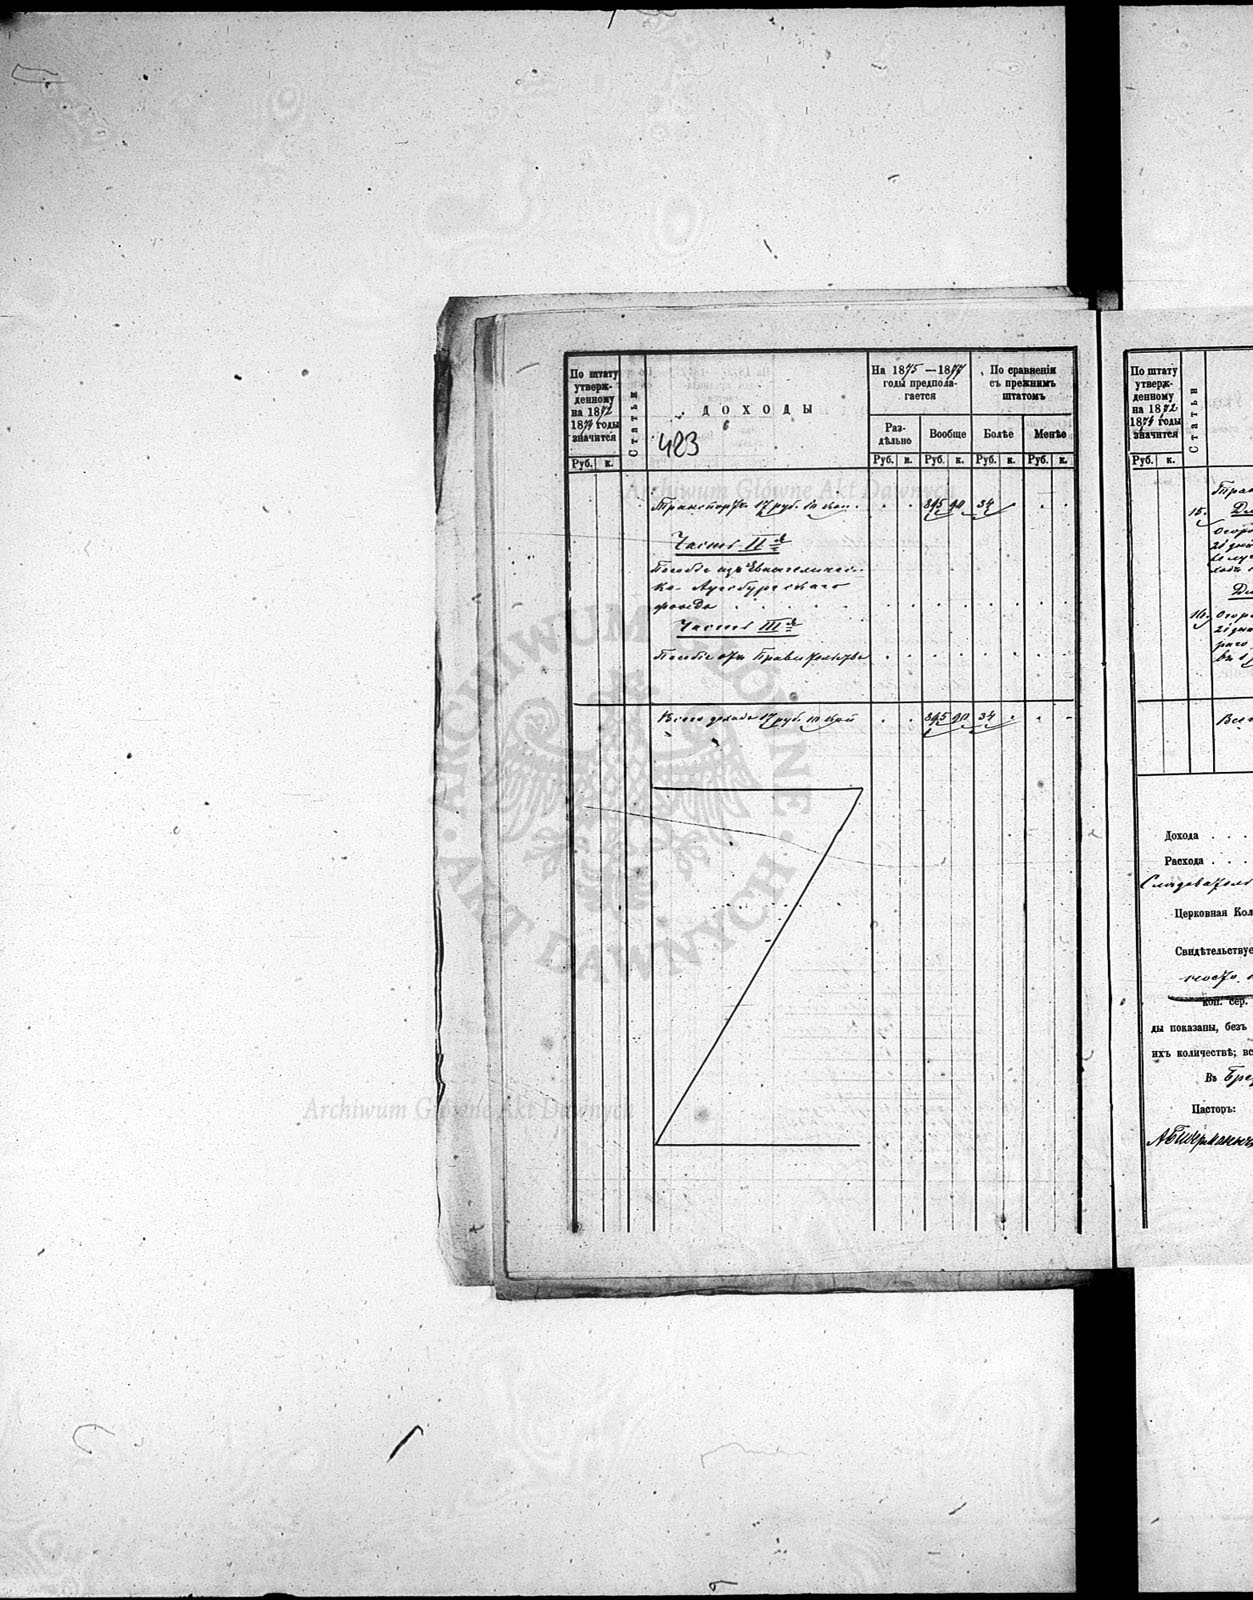 По штату
утверж-
денному
на 1872
1874 годы
значится
Руб. к.
Статьи
ДОХОДЫ
423
На 1875 — 1877
годы предпола-
гается
Раз-
дѣльно
Вообще
Руб. к. Руб. к.
По сравненію
съ прежнимъ
штатомъ
Болѣе Менѣе
Руб. к. Руб. к.
Транспортъ 17 руб. 10 коп. 895 90 34
Часть II я
Пособіе изъ Евангелическо-
Аугсбургскаго
фонда
Часть III я
Пособіе отъ Правительства
Всего дохода 17 руб. 10 895 90 34
По штату
утверж-
денному
на 1872
1874 годы
значится
Руб. к.
Статьи
15.
16.
Дохода . . .
Расхода . . .
Церковная Кол
Свидѣтельствуе
коп. сер.
ды показаны, безъ
ихъ количествѣ; вс
Въ
Пасторъ:
Archiwum Główne Akt Dawnych
ARCHIWUM GŁÓWNE · AKT DAWNYCH ·
Archiwum Główne Akt Dawnych